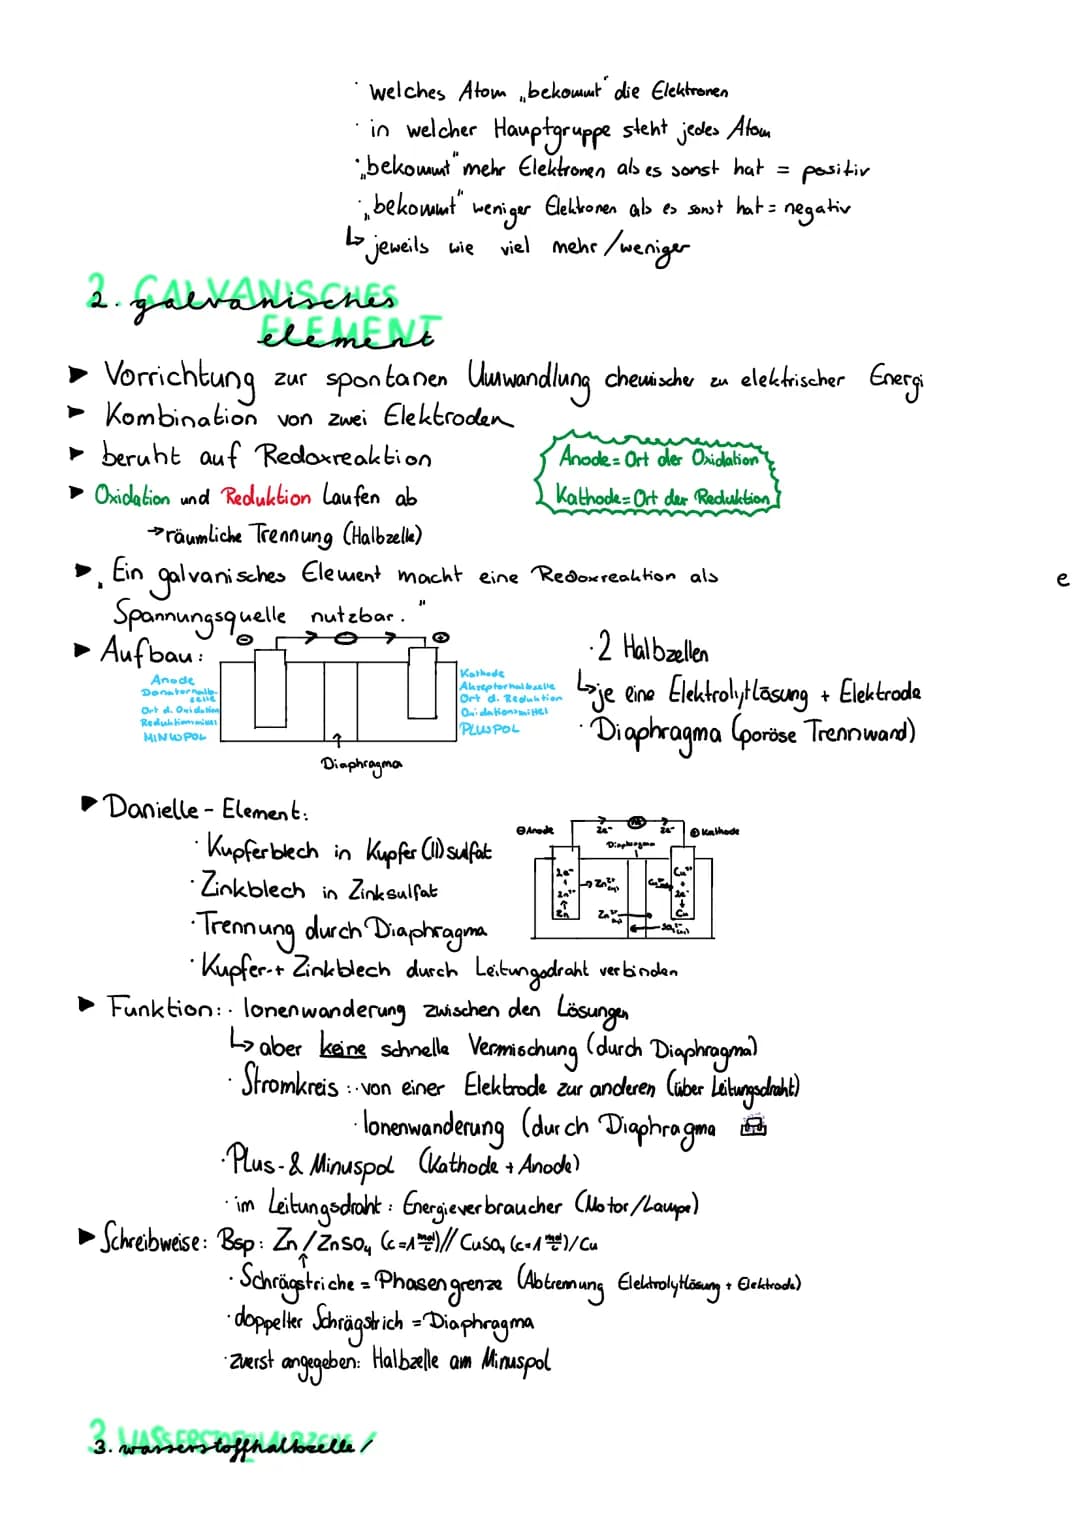 · welches Atom „bekommt" die Elektronen
· in welcher Hauptgruppe steht jedes Atom
· „bekommt" mehr Elektronen als es sonst hat = positiv
· „bekommt" weniger Elektronen als es sonst hat = negativ
↳ jeweils wie viel mehr/weniger
2. galvanisches
element
► Vorrichtung zur spontanen Umwandlung chemischer zu elektrischer Energi
e
► Kombination von zwei Elektroden
► beruht auf Redoxreaktion
► Oxidation und Reduktion laufen ab
→ räumliche Trennung (Halbzelle)
Anode = Ort der Oxidation
Kathode = Ort der Reduktion
► „Ein galvanisches Element macht eine Redoxreaktion als
Spannungsquelle nutzbar."
► Aufbau:
⊖ ⊕
Anode
Donatorhalb-
zelle
Ort d. Oxidation
Reduktionsmittel
MINUSPOL
Kathode
Akzeptorhalbzelle
Ort d. Reduktion
Oxidationsmittel
PLUSPOL
Diaphragma
· 2 Halbzellen
↳ je eine Elektrolytlösung + Elektrode
· Diaphragma (poröse Trennwand)
► Danielle - Element:
· Kupferblech in Kupfer(II)sulfat
· Zinkblech in Zinksulfat
· Trennung durch Diaphragma
· Kupfer- + Zinkblech durch Leitungsdraht verbinden
⊖ Anode 2e⁻ 2e⁻ ⊕ Kathode
Diaphragma
2e⁻
Zn²⁺
Zn
Cu²⁺
+
2e⁻
Cu
► Funktion: · Ionenwanderung zwischen den Lösungen
↳ aber keine schnelle Vermischung (durch Diaphragma)
· Stromkreis: · von einer Elektrode zur anderen (über Leitungsdraht)
· Ionenwanderung (durch Diaphragma
· Plus- & Minuspol (Kathode + Anode)
· im Leitungsdraht: Energieverbraucher (Motor/Lampe)
► Schreibweise: Bsp: Zn/ZnSO₄ (c=1 mol/L)//CuSO₄ (c=1 mol/L)/Cu
· Schrägstriche = Phasengrenze (Abtrennung Elektrolytlösung + Elektrode)
· doppelter Schrägstrich = Diaphragma
· zuerst angegeben: Halbzelle am Minuspol
3. wasserstoffhalbzelle/